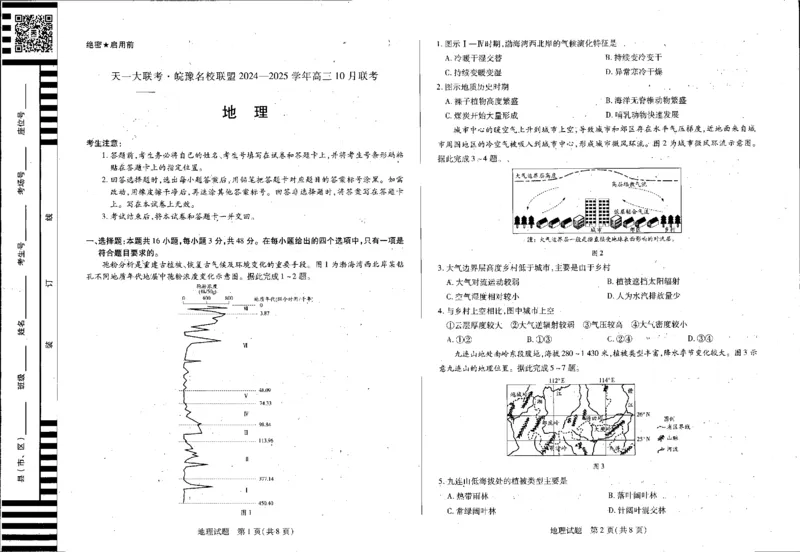 绝密★启用前
天一大联考·皖豫名校联盟2024—2025学年高三10月联考
地 理
考生注意:
1.答题前,考生务必将自己的姓名、考生号填写在试卷和答题卡上,并将考生号条形码粘
贴在答题卡上的指定位置。
2.回答选择题时,选出每小题答案后,用铅笔把答题卡对应题目的答案标号涂黑。如需
改动,用橡皮擦干净后,再选涂其他答案标号。回答非选择题时,将答案写在答题卡
上。写在本试卷上无效。
3.考试结束后,将本试卷和答题卡一并交回。
一、选择题:本题共16小题,每小题3分,共48分。在每小题给出的四个选项中,只有一项是
符合题目要求的。
孢粉分析是重建古植被、恢复古气候及环境变化的重要手段。图1为渤海湾西北岸某钻
孔不同地质年代地层中孢粉浓度变化示意图。据此完成1~2题。
孢粉浓度
(粒/50g)
0 400 800 地质年代(距今时间/千年)
0
Ⅶ
3.87
Ⅵ
Ⅴ
74.33
Ⅳ
Ⅲ
113.96
Ⅱ
Ⅰ
450.40
图1
地理试题 第1页(共8页)
座位号
考场号
考生号
姓名
班级
县(市、区)
线
订
装
1.图示Ⅰ—Ⅳ时期,渤海湾西北岸的气候演化特征是
A.冷暖干湿交替 B.持续变冷变干
C.持续变暖变湿 D.异常寒冷干燥
2.图示地质历史时期
A.裸子植物高度繁盛 B.海洋无脊椎动物繁盛
C.煤炭开始大量形成 D.哺乳动物快速发展
城市中心的暖空气上升到城市上空,导致城市和郊区存在水平气压梯度,近地面来自城
市周围地区的冷空气被吸入到城市中心,形成城市微风环流。图2为城市微风环流示意图。
据此完成3~4题。
大气边界层高度
城市
乡村
注:大气边界层一般是指直接受地球表面影响的对流层。
图2
3.大气边界层高度乡村低于城市,主要是由于乡村
A.大气对流运动较弱 B.植被遮挡太阳辐射
C.空气湿度相对较小 D.人为水汽排放量少
4.与乡村上空相比,图中城市上空
①云层厚度较大 ②大气逆辐射较弱 ③气压较高 ④大气密度较小
A.①② B.①③ C.②④ D.③④
九连山地处南岭东段腹地,海拔280~1 430米,植被类型丰富,降水季节变化较大。图3示
意九连山的地理位置。据此完成5~7题。
112°E 114°E
26°N
25°N
图例
省区界线
山脉
河流
图3
5.九连山低海拔处的植被类型主要是
A.热带雨林 B.落叶阔叶林
C.常绿阔叶林 D.针阔叶混交林
地理试题 第2页(共8页)